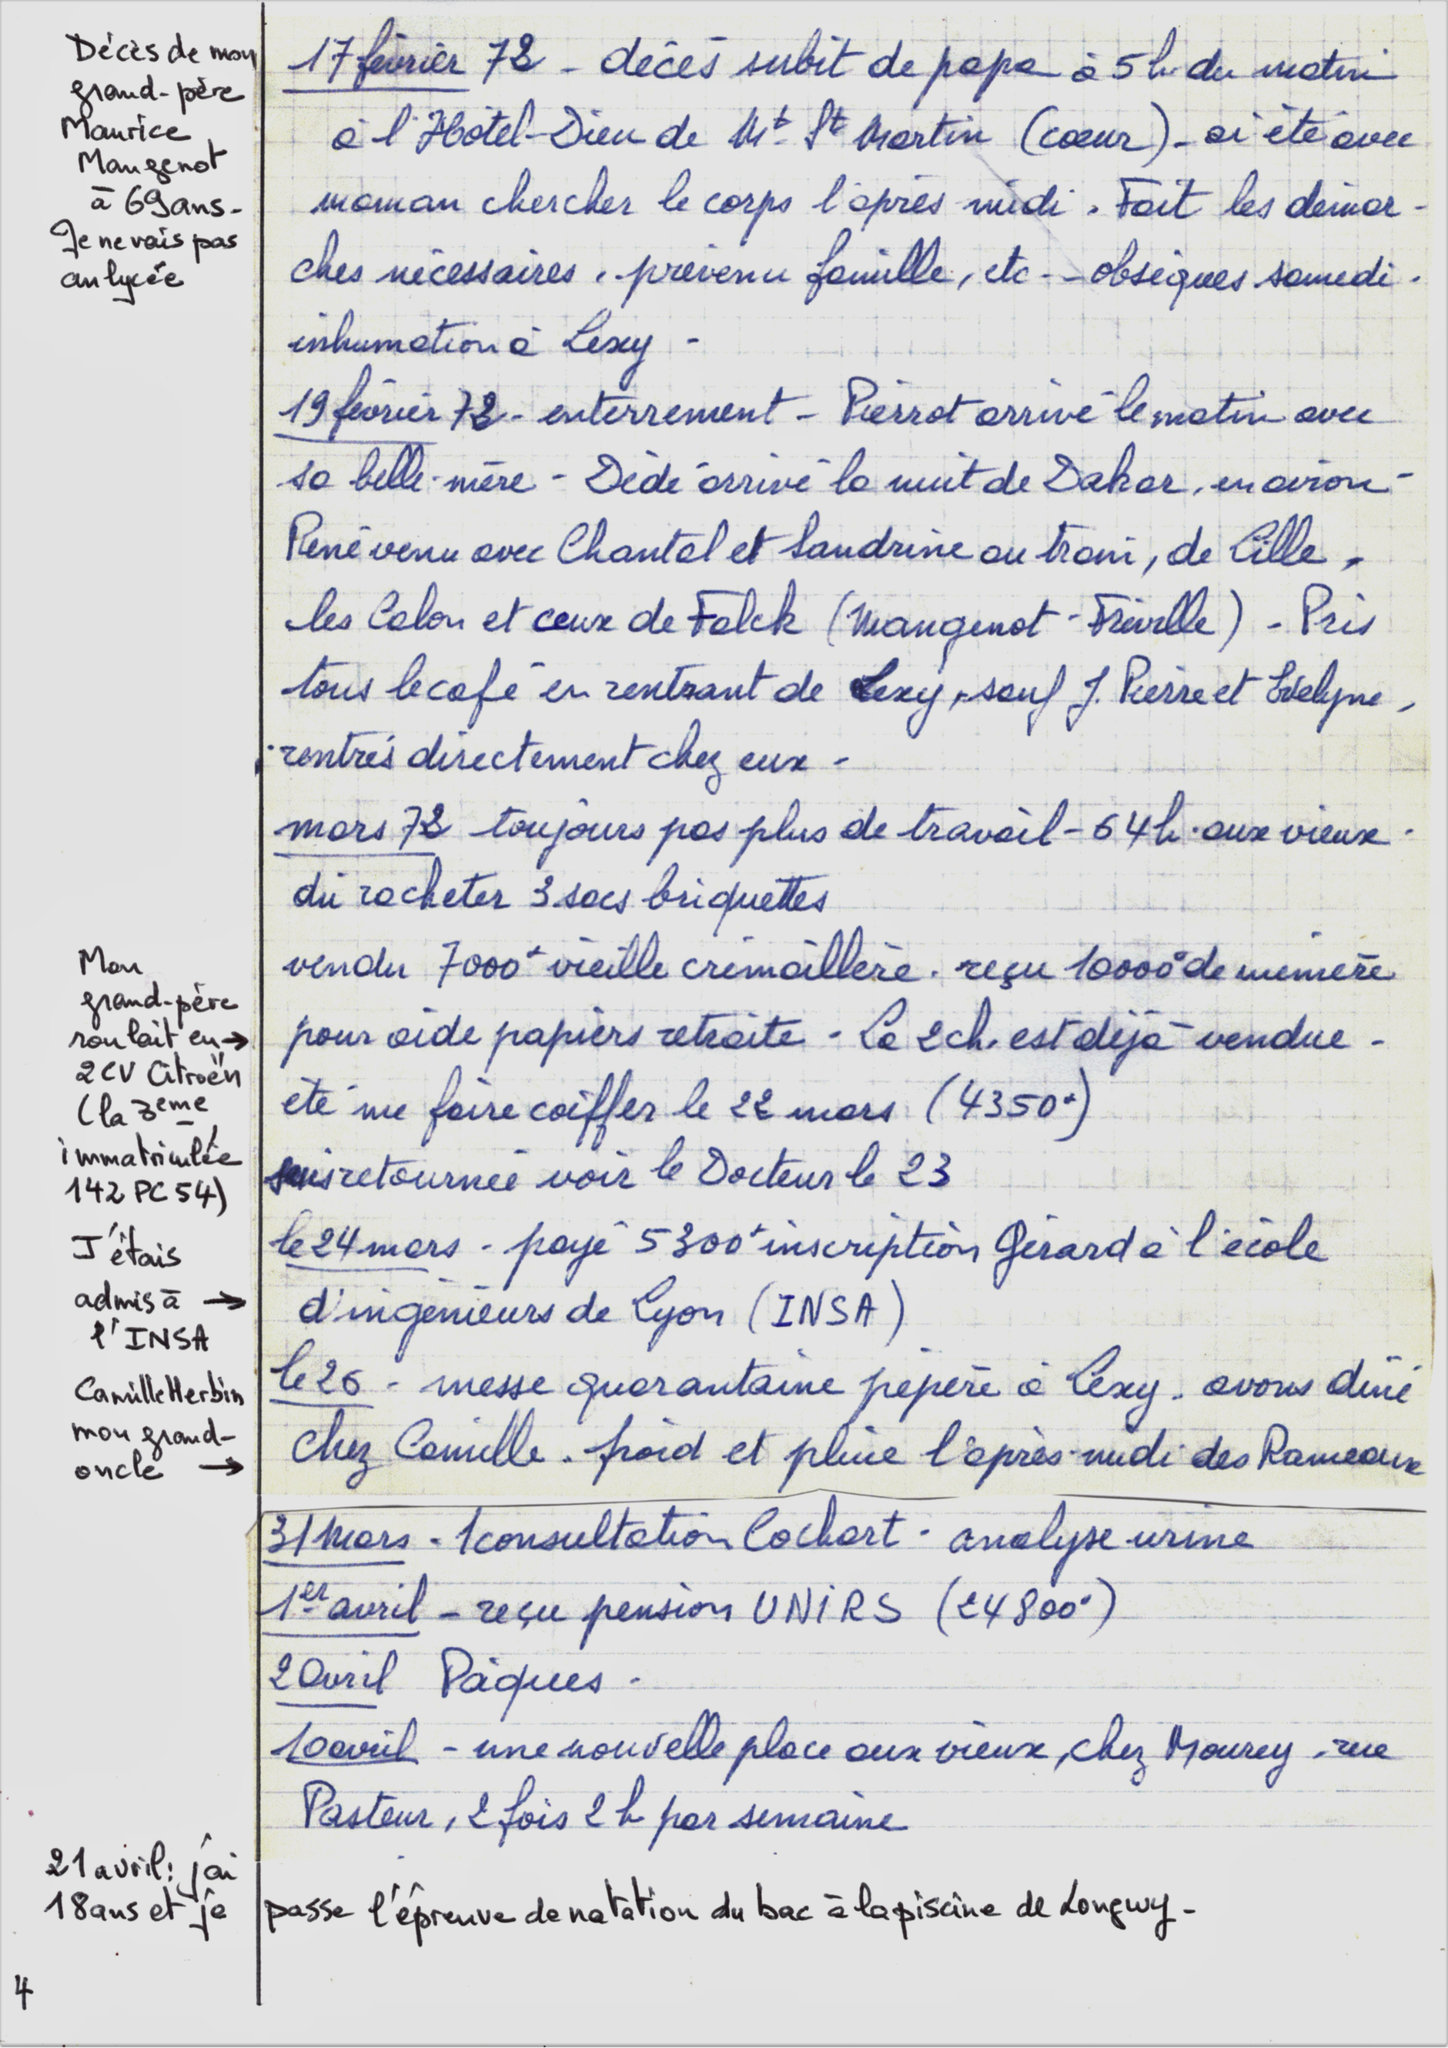 Décès de mon
grand-père
Maurice
Mangenot
à 69 ans-
Je ne vais pas
au lycée
17 février 72 - décés subit de papa à 5 h. du matin
à l'Hôtel-Dieu de Mt St Martin (cœur) - ai été avec
maman chercher le corps l'après midi. Fait les démar-
ches nécessaires. prévenu famille, etc - obsèques samedi.
inhumation à Lexy -
19 février 72 - enterrement - Pierrot arrivé le matin avec
sa belle-mère - Dédé arrivé la nuit de Dakar, en avion -
René venu avec Chantal et Sandrine au train, de Lille,
les Colon et ceux de Falck (Mangenot - Friville) - Pris
tous le café en rentrant de Lexy, sauf J. Pierre et Evelyne,
rentrés directement chez eux -
mars 72 toujours pas plus de travail - 64 h. aux vieux.
dû racheter 3 sacs briquettes
Mon
grand-père
roulait en →
2CV Citroën
(la 3eme
immatriculée
142 PC 54)
vendu 7000° vieille crémaillère. reçu 10000° de mémère
pour aide papiers retraite - La 2ch. est déjà vendue -
été me faire coiffer le 22 mars (4350°)
suis retournée voir le Docteur le 23
J'étais
admis à →
l'INSA
le 24 mars - payé 5300° inscription Gérard à l'école
d'ingénieurs de Lyon (INSA)
Camille Herbin
mon grand-
oncle →
le 26 - messe quarantaine pépère à Lexy. avons diné
chez Camille. froid et pluie l'après-midi des Rameaux
31 Mars - 1 consultation Cochart - analyse urine
1er avril - reçu pension UNIRS (24800°)
2 Avril Pâques -
10 avril - une nouvelle place aux vieux, chez Mourey, rue
Pasteur, 2 fois 2 h par semaine
21 avril: j'ai
18 ans et je passe l'épreuve de natation du bac à la piscine de Longwy-
4